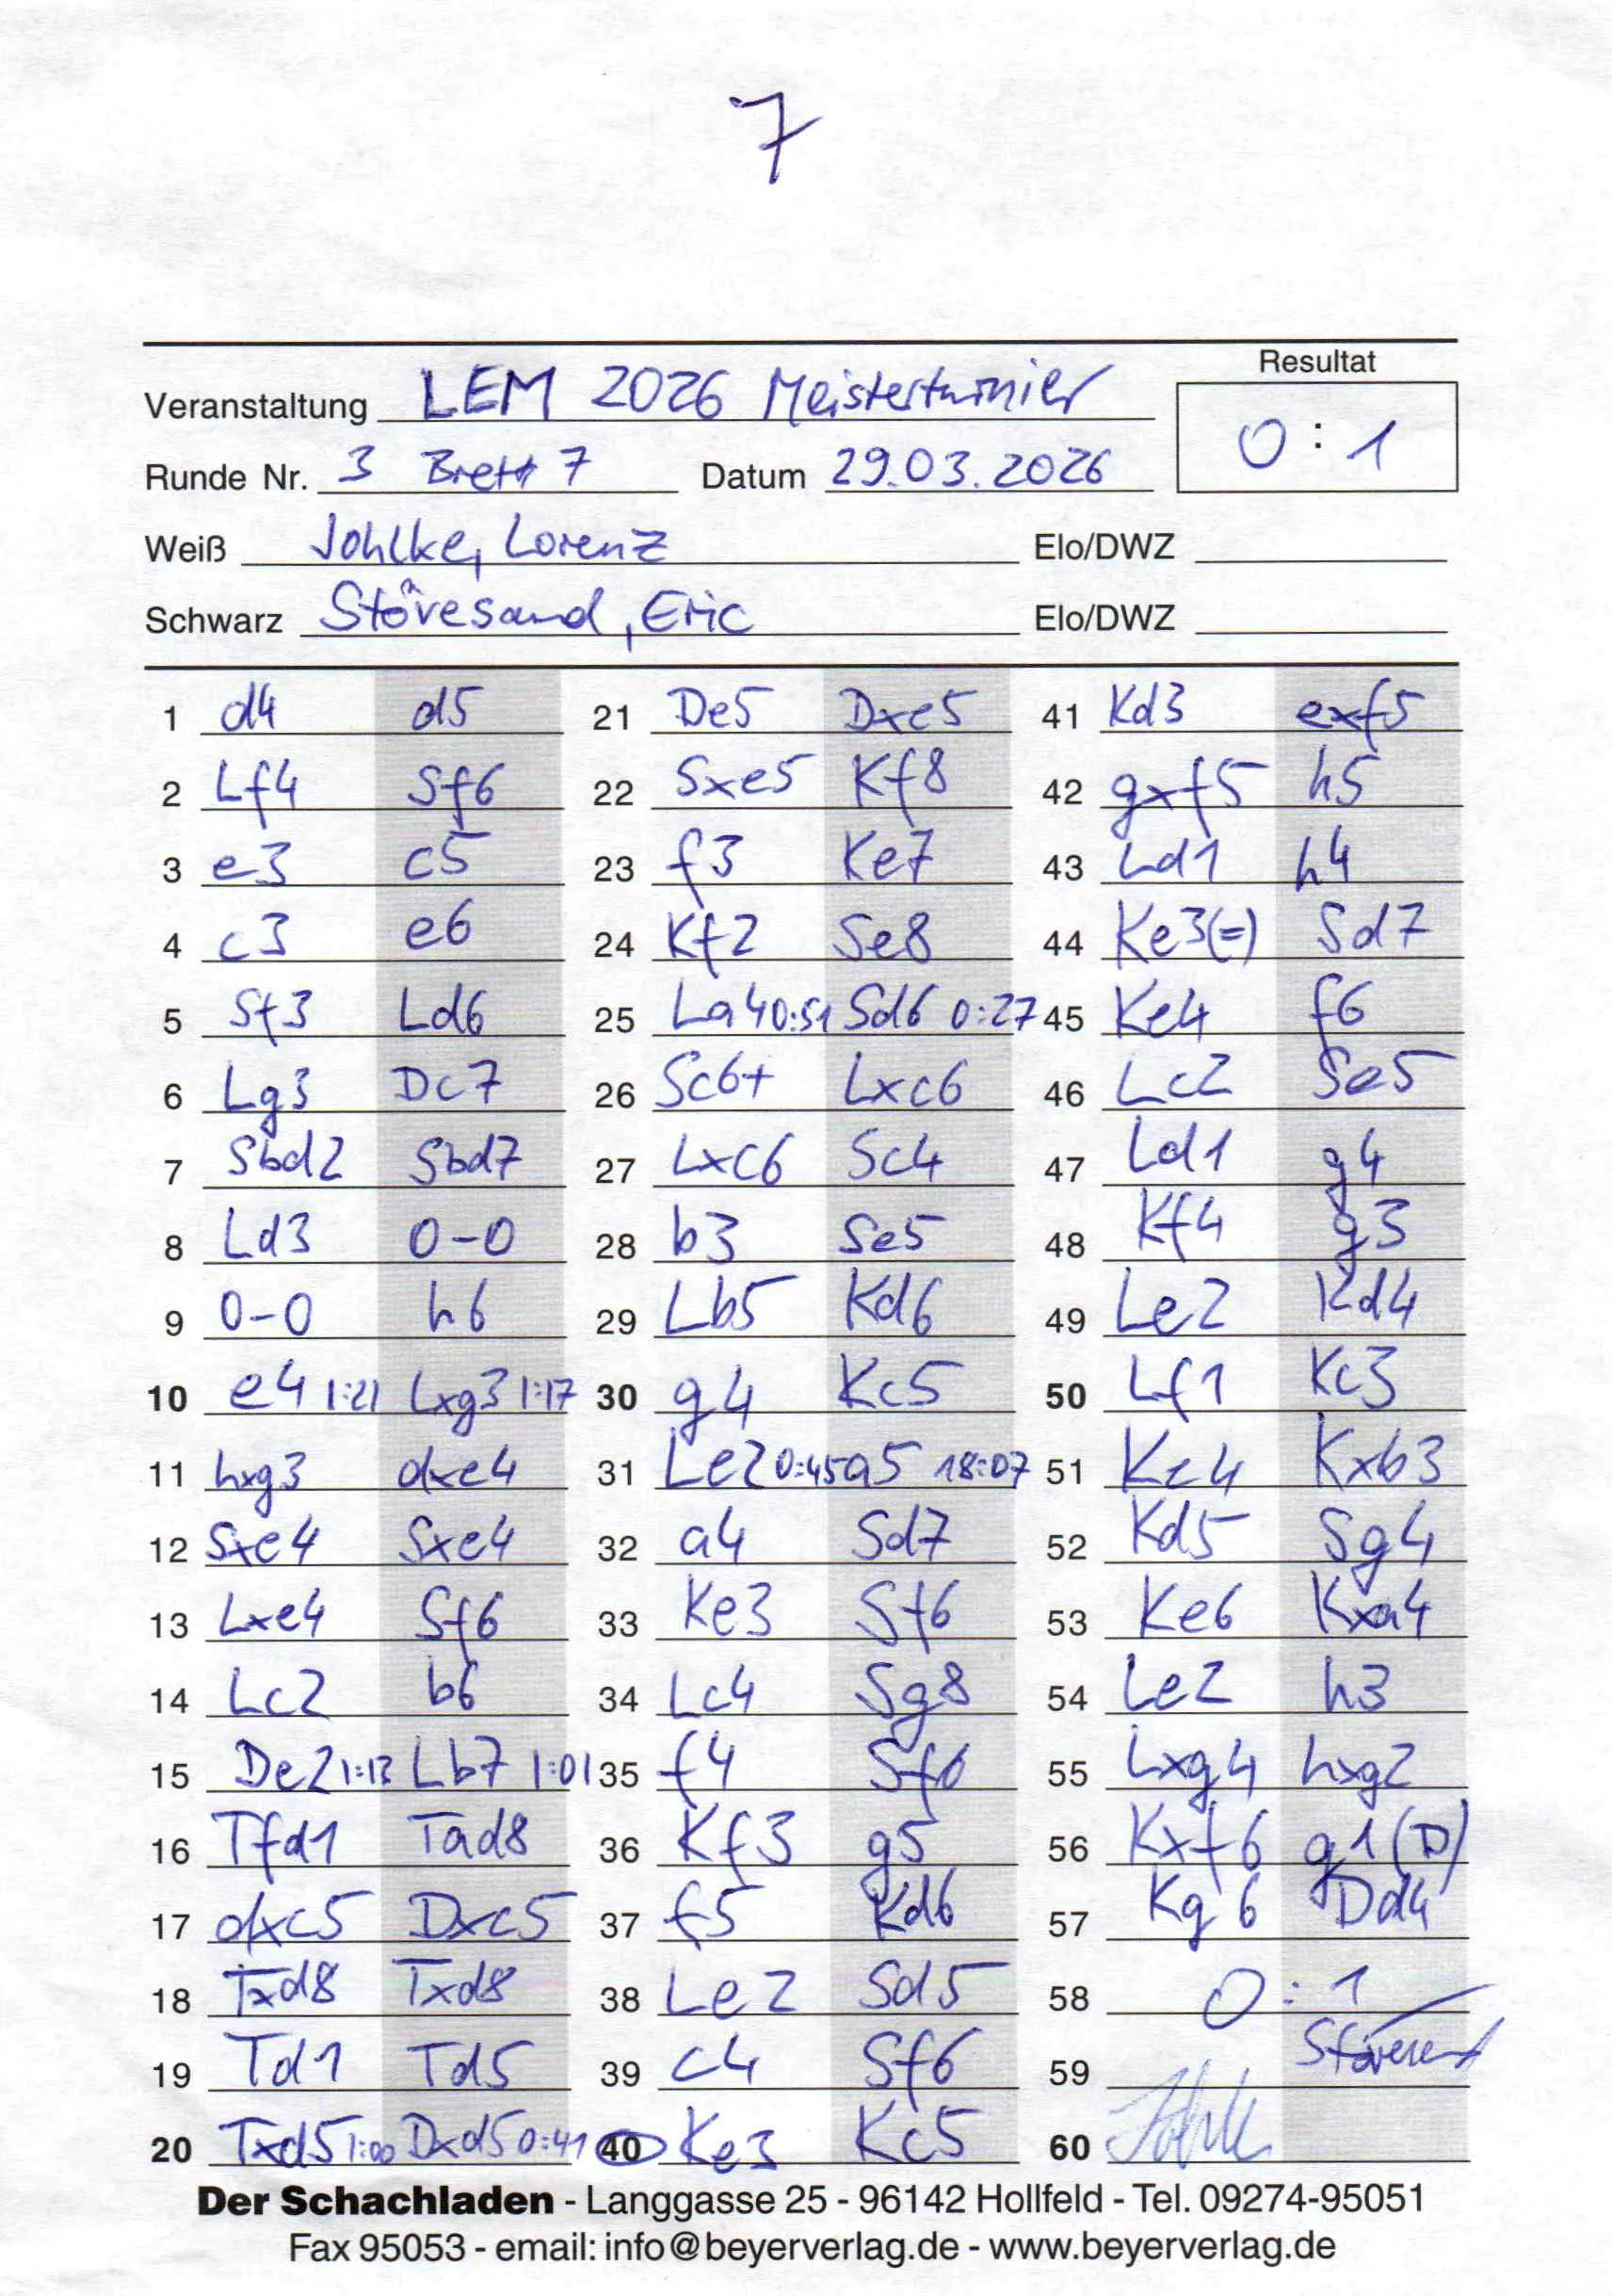 7
Resultat
Veranstaltung LEM 2026 Meisterturnier 0 : 1
Runde Nr. 3 Brett 7 Datum 29.03.2026
Weiß Johlke, Lorenz Elo/DWZ
Schwarz Stövesand, Eric Elo/DWZ
1 d4 d5 21 De5 Dxe5 41 Kd3 exf5
2 Lf4 Sf6 22 Sxe5 Kf8 42 gxf5 h5
3 e3 c5 23 f3 Ke7 43 Ld1 h4
4 c3 e6 24 Kf2 Se8 44 Ke3(=) Sd7
5 Sf3 Ld6 25 La4 0:51 Sd6 0:27 45 Ke4 f6
6 Lg3 Dc7 26 Sc6+ Lxc6 46 Lc2 Se5
7 Sbd2 Sbd7 27 Lxc6 Sc4 47 Ld1 g4
8 Ld3 0-0 28 b3 Se5 48 Kf4 g3
9 0-0 h6 29 Lb5 Kd6 49 Le2 Kd4
10 e4 1:21 Lxg3 1:17 30 g4 Kc5 50 Lf1 Kc3
11 hxg3 dxe4 31 Le2 0:45 a5 18:07 51 Ke4 Kxb3
12 Sxe4 Sxe4 32 a4 Sd7 52 Kd5 Sg4
13 Lxe4 Sf6 33 Ke3 Sf6 53 Ke6 Kxa4
14 Lc2 b6 34 Lc4 Sg8 54 Le2 h3
15 De2 1:13 Lb7 1:01 35 f4 Sf6 55 Lxg4 hxg2
16 Tfd1 Tad8 36 Kf3 g5 56 Kxf6 g1(D)
17 dxc5 Dxc5 37 f5 Kd6 57 Kg6 Dd4
18 Txd8 Txd8 38 Le2 Sd5 58 0 : 1
19 Td1 Td5 39 c4 Sf6 59
20 Txd5 1:00 Dxd5 0:41 40 Ke3 Kc5 60
Der Schachladen - Langgasse 25 - 96142 Hollfeld - Tel. 09274-95051
Fax 95053 - email: info@beyerverlag.de - www.beyerverlag.de